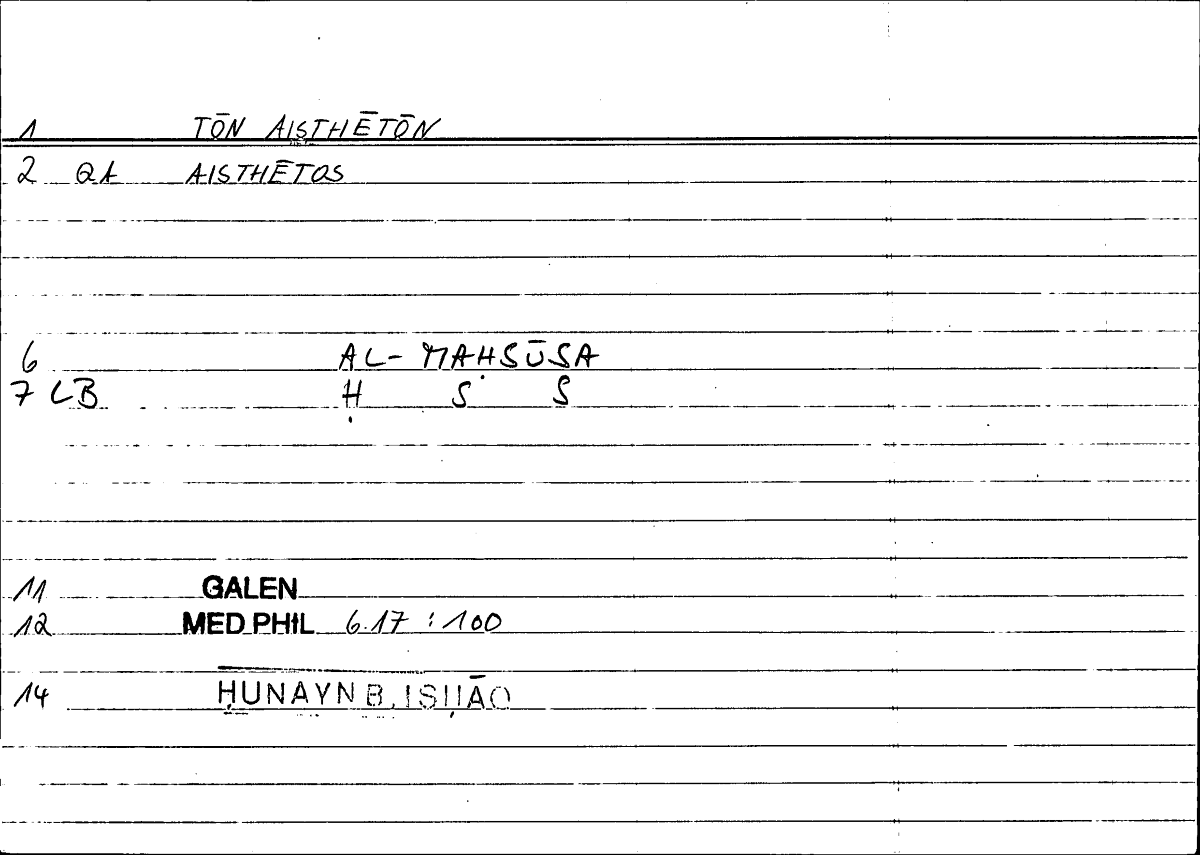 1 TŌN AISTHĒTŌN
2 QA AISTHĒTOS
6 AL-MAHSŪSA
7 LB Ḥ S S
11 GALEN
12 MED PHIL 6.17 : 100
14 ḤUNAYN B. ISḤĀQ